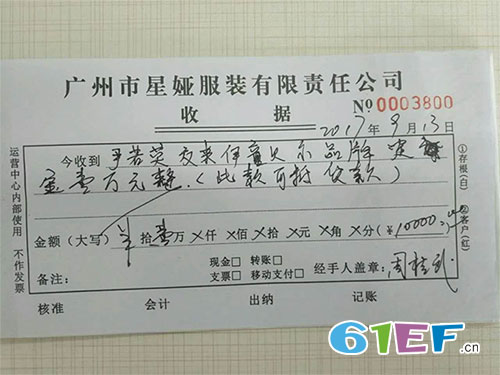 广州市星娅服装有限责任公司
收 据 №0003800
2017年9月13日
今收到 若英交来伊童贝尔品牌定
金壹万元整.(此款可抵货款)
金额(大写) 拾壹万×仟×佰×拾×元×角×分(¥10000.
现金□ 转账□
备注: 支票□ 移动支付□ 经手人盖章: 周桂
核准 会计 出纳 记账
运营中心内部使用 不作发票
①存根(白) ②客户(红)
61EF.cn